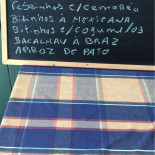 Febrinhas c/camarão
Bitinhos à Mexicana
Bitinhos c/cogumelos
BACALHAU À BRAZ
ARROZ DE PATO